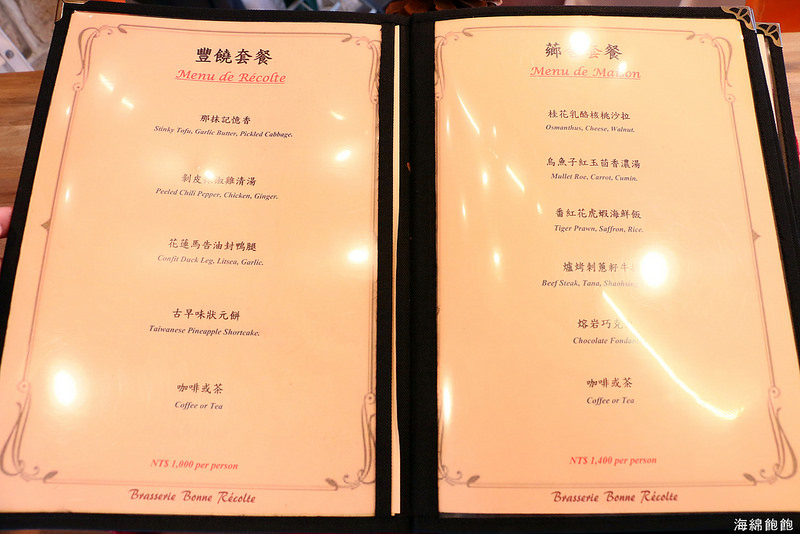 豐饒套餐
Menu de Récolte
那抹記憶香
Stinky Tofu, Garlic Butter, Pickled Cabbage.
剝皮辣椒雞清湯
Peeled Chili Pepper, Chicken, Ginger.
花蓮馬告油封鴨腿
Confit Duck Leg, Litsea, Garlic.
古早味狀元餅
Taiwanese Pineapple Shortcake.
咖啡或茶
Coffee or Tea
NT$ 1,000 per person
Brasserie Bonne Récolte
套餐
Menu de Maison
桂花乳酪核桃沙拉
Osmanthus, Cheese, Walnut.
烏魚子紅玉茴香濃湯
Mullet Roe, Carrot, Cumin.
番紅花虎蝦海鮮飯
Tiger Prawn, Saffron, Rice.
爐烤刺蔥籽牛
Beef Steak, Tana,
熔岩巧克
Chocolate Fondant
咖啡或茶
Coffee or Tea
NT$ 1,400 per person
Brasserie Bonne Récolte
海綿飽飽